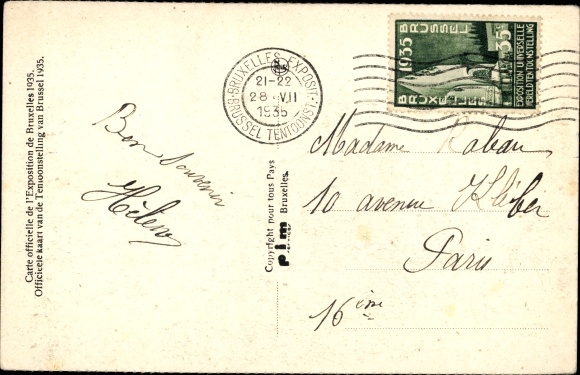 Carte officielle de l'Exposition de Bruxelles 1935.
Officieele kaart van de Tentoonstelling van Brussel 1935.
BRUXELLES EXPOSIT.
21-22
28 VII
1935
BRUSSEL TENTOONST.
1935
BRUXELLES
BRUSSEL
35
EXPOSITION UNIVERSELLE
WERELDTENTOONSTELLING
Bon Souvenir
Hélène
Copyright pour tous Pays
pim Bruxelles.
Madame
10 avenue Kléber
Paris
16ème